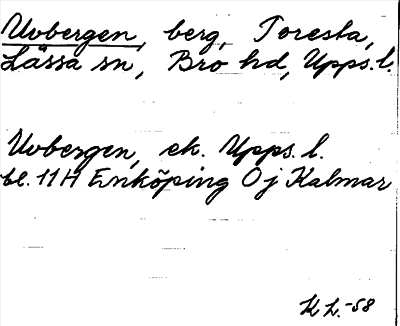 Uvbergen, berg, Toresta,
Låssa sn, Bro hd, Upps. l.
Uvbergen, ek. Upps. l.
bl. 11H Enköping 0j Kalmar
K L.-58